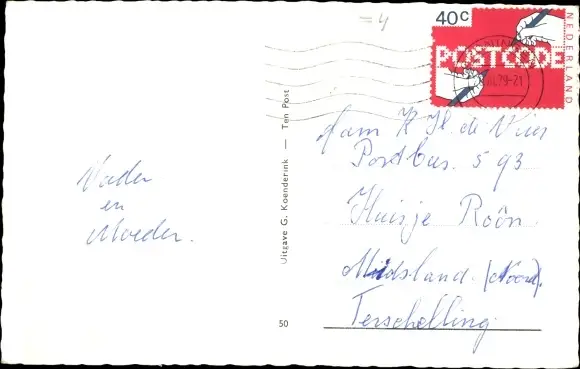 =4
40c
NEDERLAND
POSTCODE
29-21
Vader
en
Moeder.
Uitgave G. Koenderink — Ten Post
50
Fam K Jl. de Vries
Postbus. 593
Huisje Roôn.
Midsland. (Noord).
Terschelling.